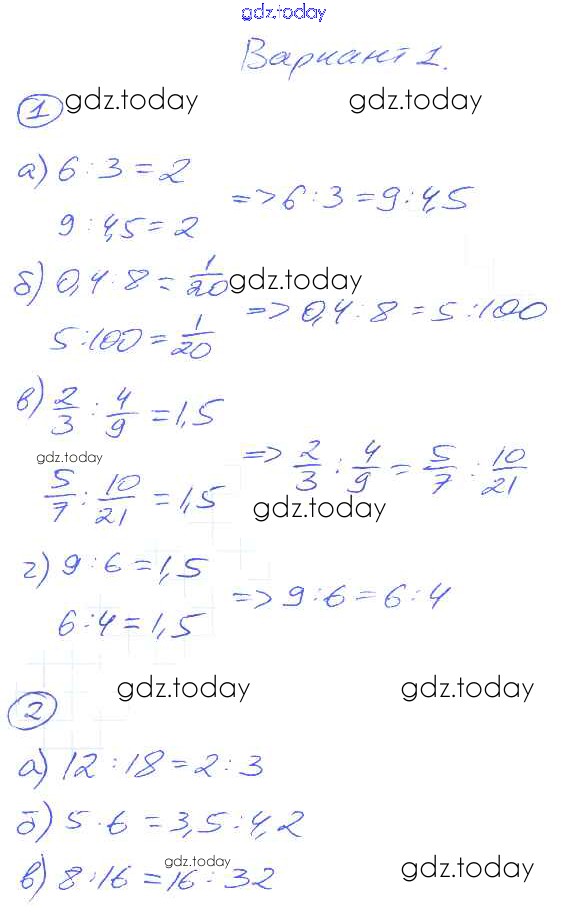 gdz.today
Вариант 1.
① gdz.today gdz.today
а) 6 : 3 = 2
=> 6 : 3 = 9 : 4,5
9 : 4,5 = 2
б) 0,4 : 8 = 1/20 gdz.today
=> 0,4 : 8 = 5 : 100
5 : 100 = 1/20
в) 2/3 : 4/9 = 1,5
gdz.today
=> 2/3 : 4/9 = 5/7 : 10/21
5/7 : 10/21 = 1,5
gdz.today
г) 9 : 6 = 1,5
=> 9 : 6 = 6 : 4
6 : 4 = 1,5
gdz.today gdz.today
②
а) 12 : 18 = 2 : 3
б) 5 : 6 = 3,5 : 4,2
gdz.today gdz.today
в) 8 : 16 = 16 : 32